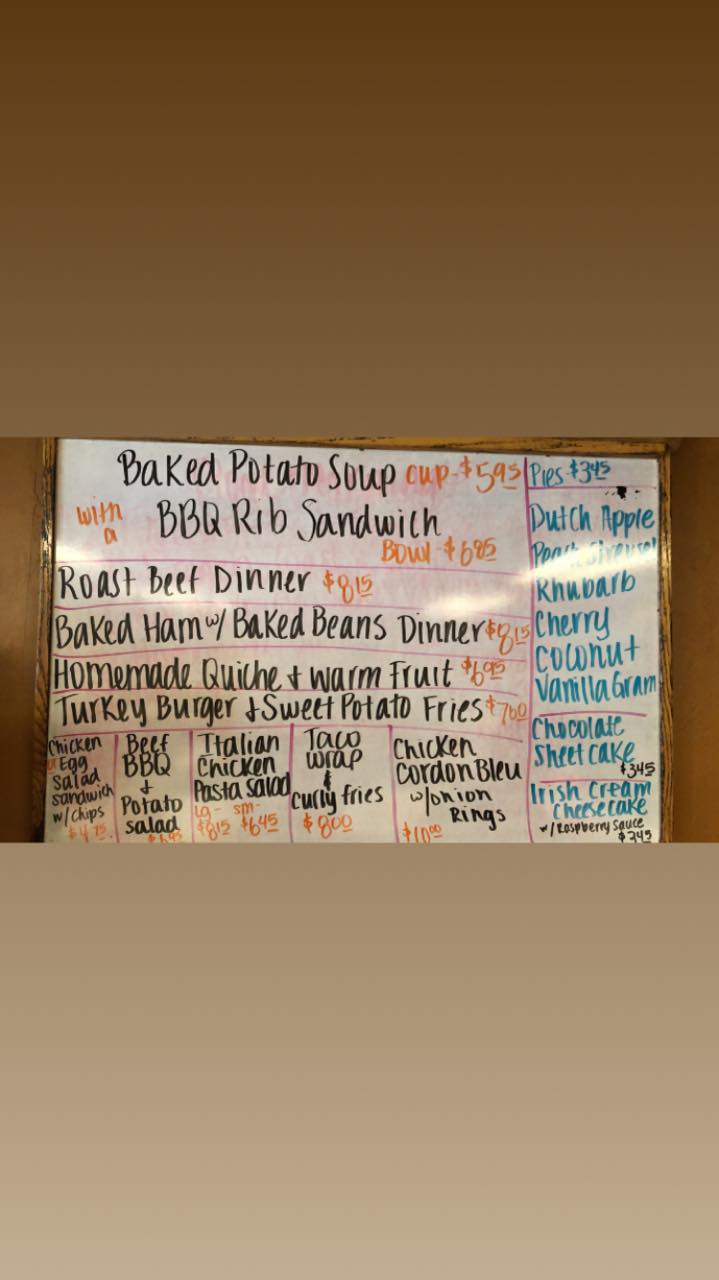 Baked Potato Soup cup-$5.95
with a BBQ Rib Sandwich
Bowl-$6.95
Roast Beef Dinner $8.15
Baked Ham w/ Baked Beans Dinner $8.15
Homemade Quiche + Warm Fruit $6.95
Turkey Burger + Sweet Potato Fries $7.60
Chicken
or Egg
Salad
Sandwich
w/ Chips
$4.75
Beef
BBQ
+
Potato
Salad
$6.45
Italian
Chicken
Pasta Salad
Lg- sm-
$8.15 $6.45
Taco
Wrap
&
Curly fries
$8.00
Chicken
Cordon Bleu
w/onion
Rings
$10.00
Pies $3.45
Dutch Apple
Peach Streusel
Rhubarb
Cherry
Coconut
Vanilla Gram
Chocolate
Sheet cake
$3.45
Irish Cream
Cheesecake
w/ Raspberry Sauce
$3.45